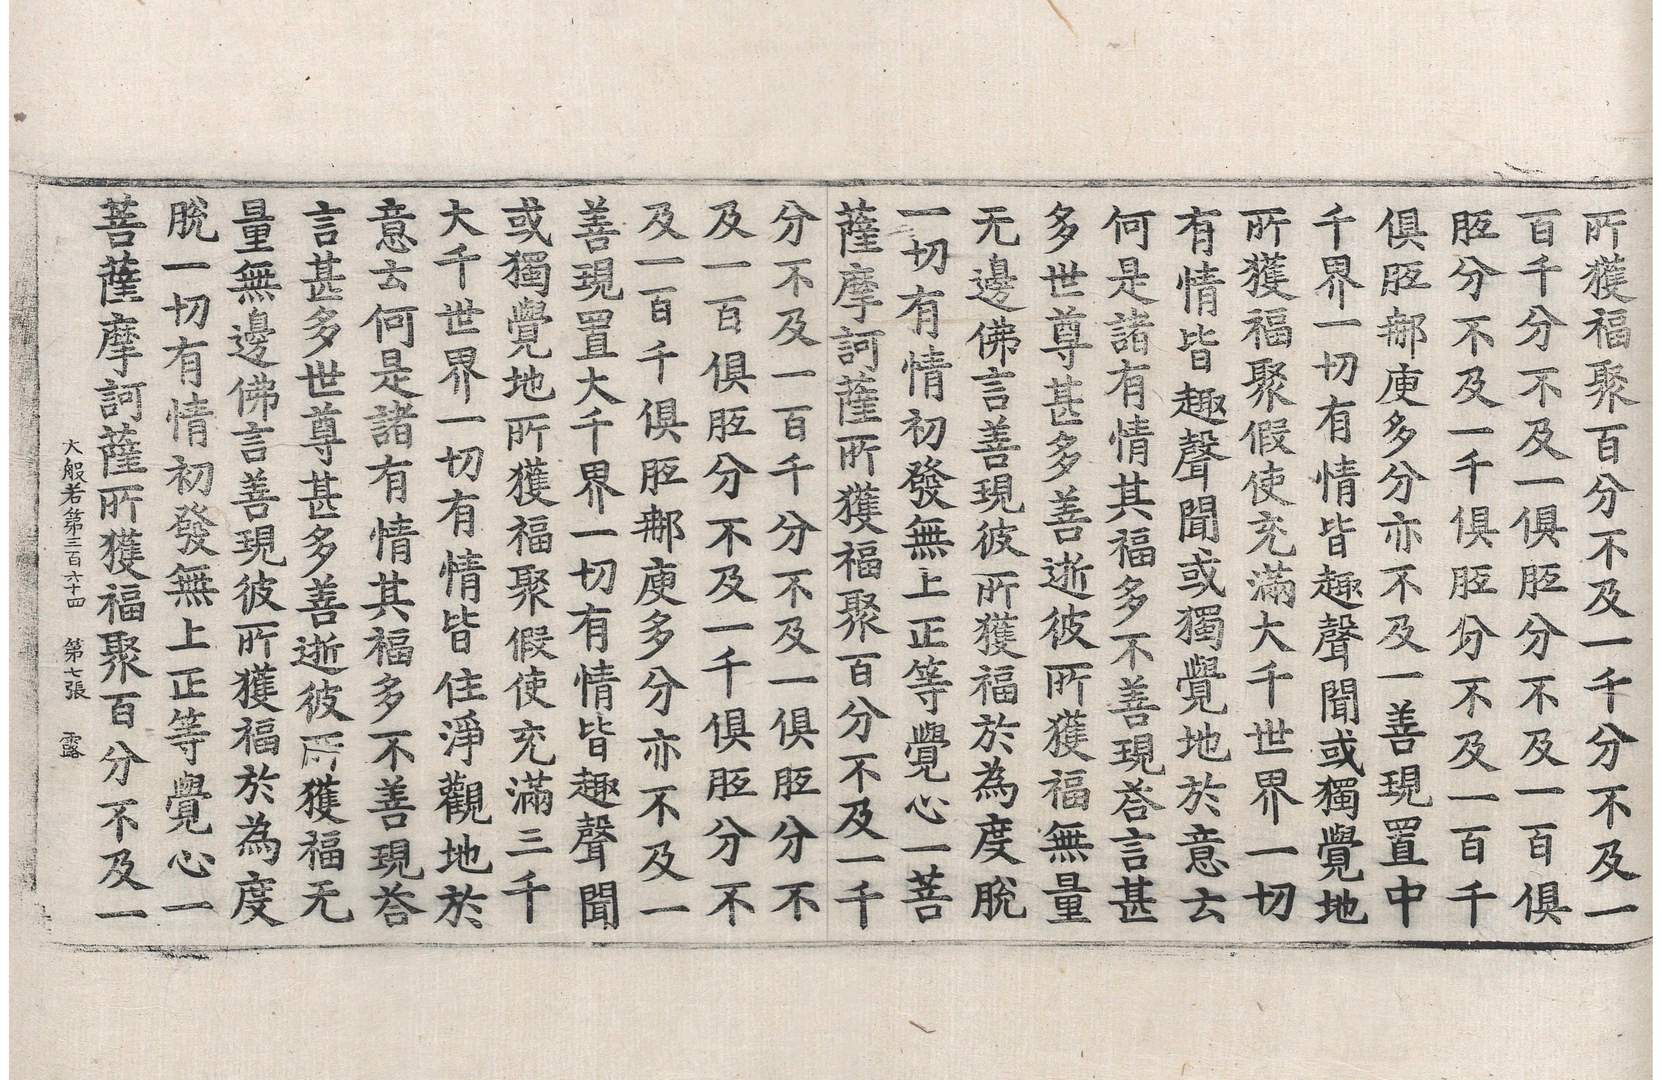 所獲福聚百分不及一千分不及一
百千分不及一俱胝分不及一百俱
胝分不及一千俱胝分不及一百千
俱胝郍庾多分亦不及一善現置中
千界一切有情皆趣聲聞或獨覺地
所獲福聚假使充滿大千世界一切
有情皆趣聲聞或獨覺地於意云
何是諸有情其福多不善現荅言甚
多世尊甚多善逝彼所獲福無量
无邊佛言善現彼所獲福於為度脫
一切有情初發無上正等覺心一菩
薩摩訶薩所獲福聚百分不及一千
分不及一百千分不及一俱胝分不
及一百俱胝分不及一千俱胝分不
及一百千俱胝郍庾多分亦不及一
善現置大千界一切有情皆趣聲聞
或獨覺地所獲福聚假使充滿三千
大千世界一切有情皆住淨觀地於
意云何是諸有情其福多不善現荅
言甚多世尊甚多善逝彼所獲福无
量無邊佛言善現彼所獲福於為度
脫一切有情初發無上正等覺心一
菩薩摩訶薩所獲福聚百分不及一
大般若第三百六十四 第七張 露